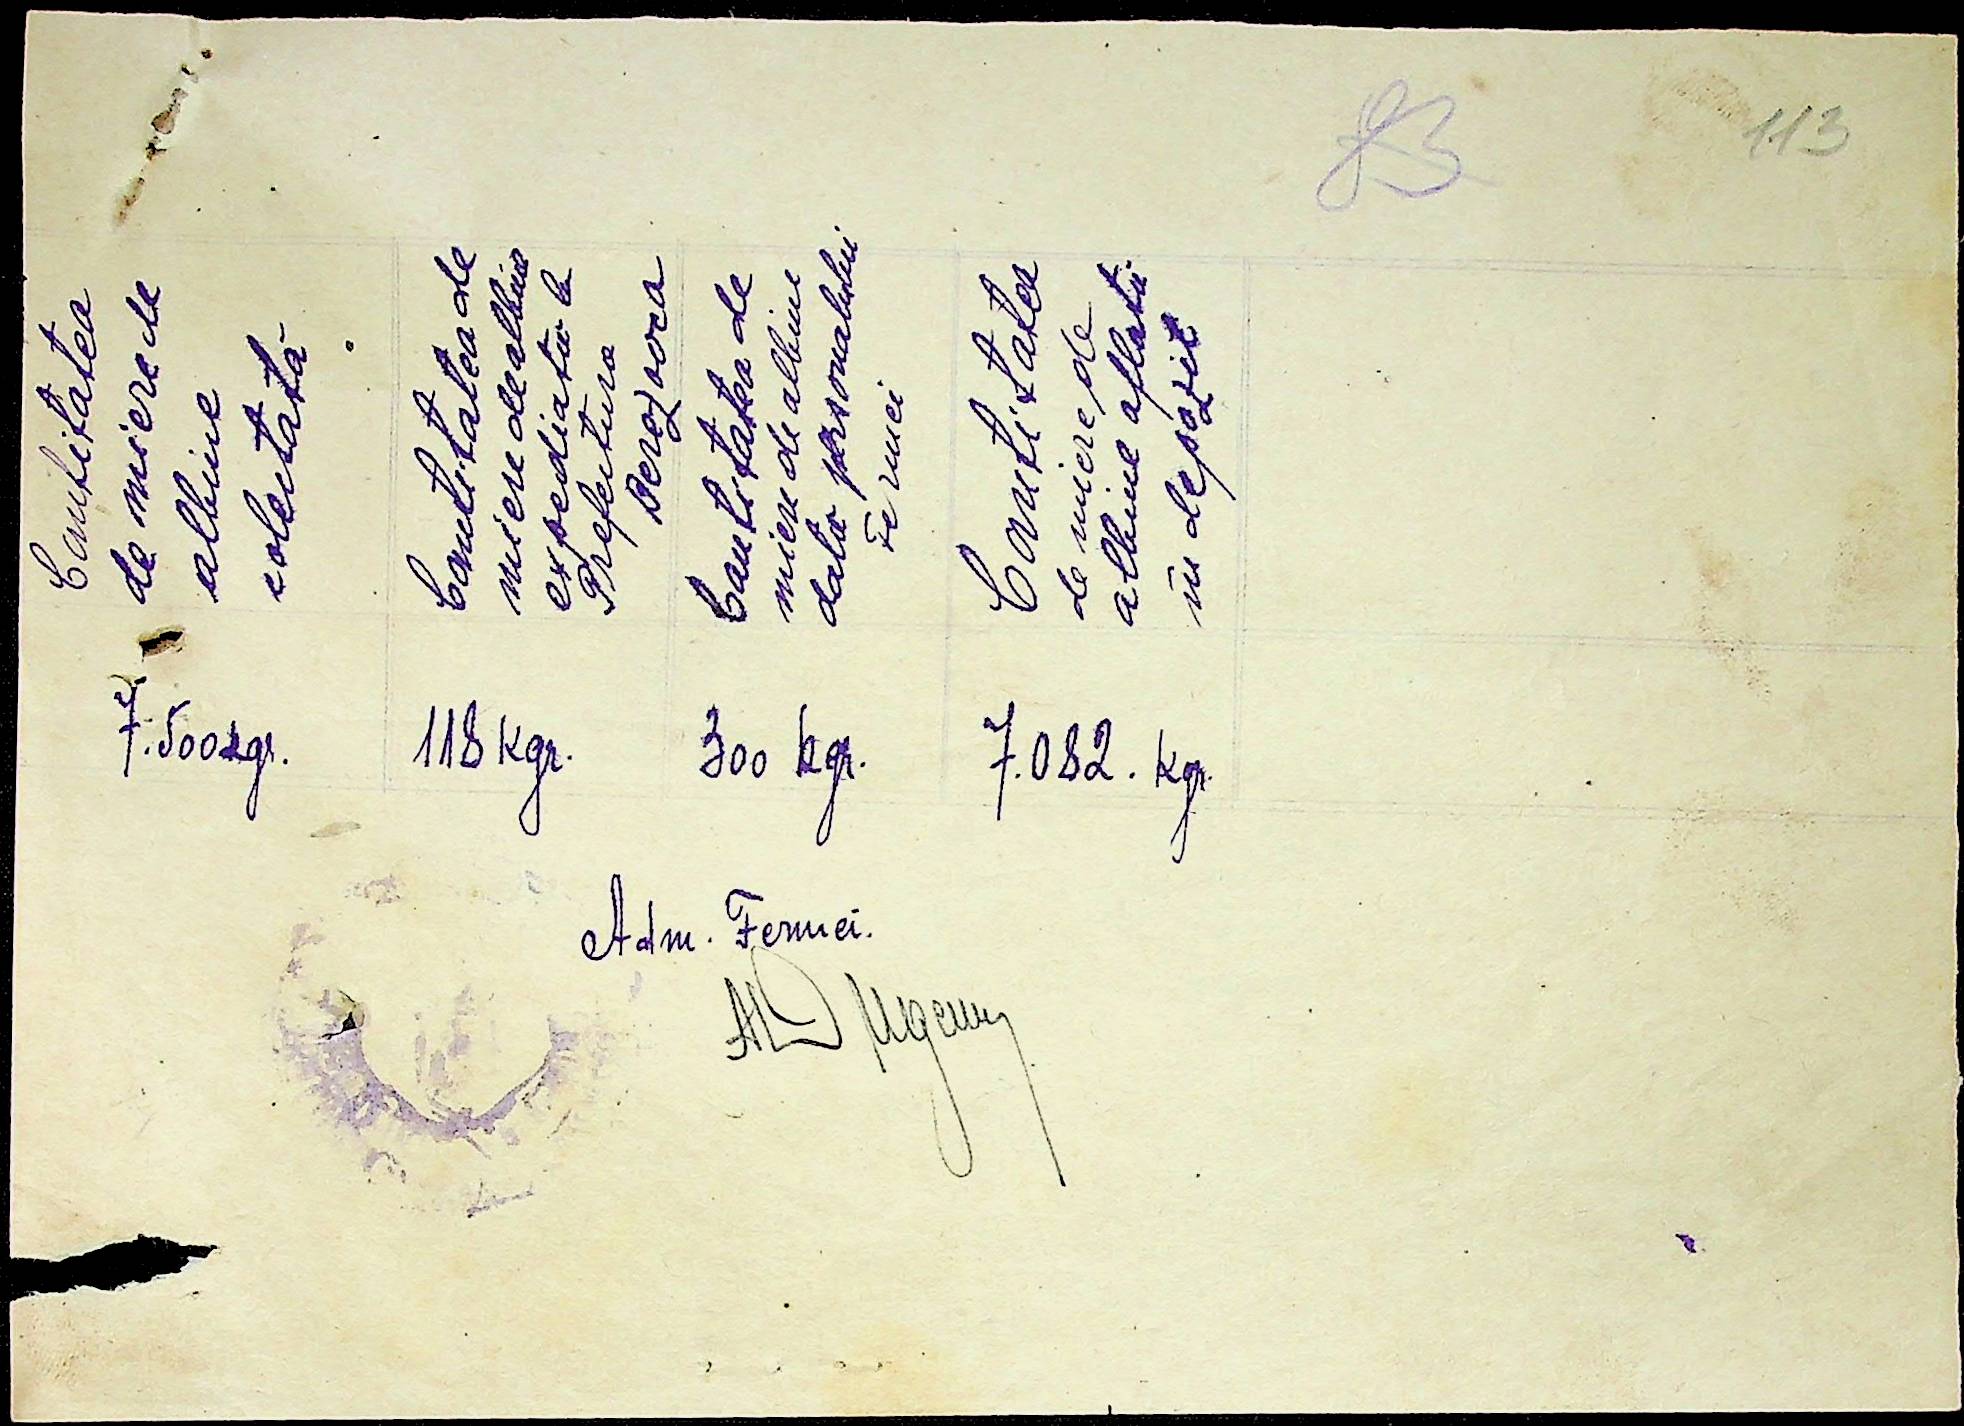 113
Cantitatea
de miere de
albine
colectată
Cantitatea de
miere de albine
expediată la
Prefectura
Berezovca
Cantitatea de
miere de albine
dată personalului
Fermei
Cantitatea
de miere de
albine aflată
în depozit
7.500 kgr.
118 kgr.
300 kgr.
7.082. kgr.
Adm. Fermei.